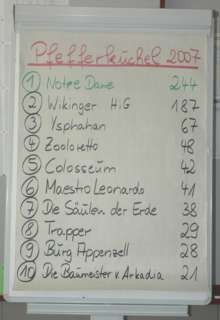 Pfefferkuchel 2007
1 Notre Dame 244
2 Wikinger H.G 187
3 Ysphahan 67
4 Zooloretto 48
5 Colosseum 42
6 Maestro Leonardo 41
7 Die Säulen der Erde 38
8 Trapper 29
9 Burg Appenzell 28
10 Die Baumeister v. Arkadia 21